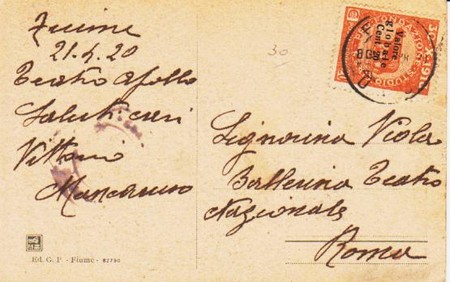 Fiume
21.4.20
Teatro Apollo
Saluti cari
Vittorio
30
Valore
globale
Cent 20
Signorina Viola
Ballerina Teatro
Nazionale
Roma
Ed. G. F. - Fiume -